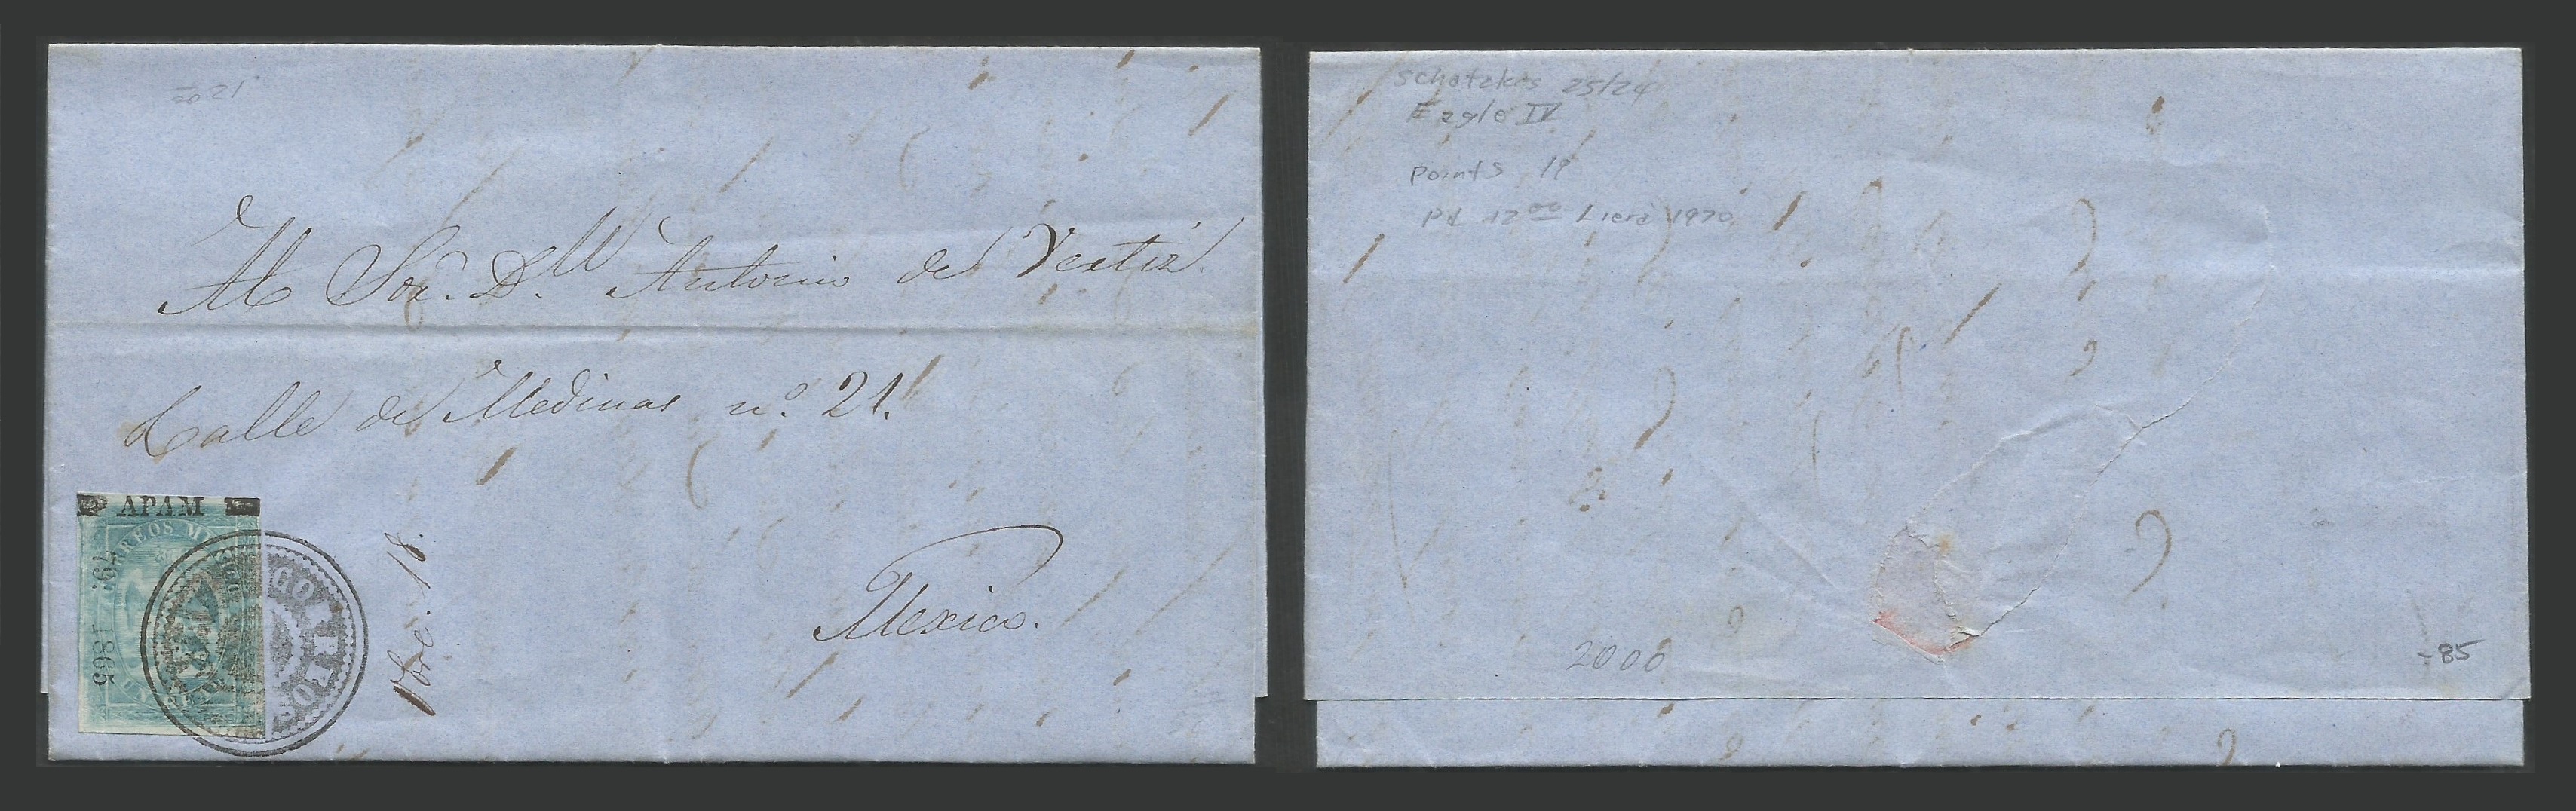 21
Al Sor. Dn. Antonio de Vertiz.
Calle de Medinas no. 21.
Mexico.
APAM
CORREOS ME
79. 1865
FRANCO APAM
Obre. 18.
Schatzkes 25/24
Eagle IV
Points 19
Pd 12 00 Liera 1970
2000
-85